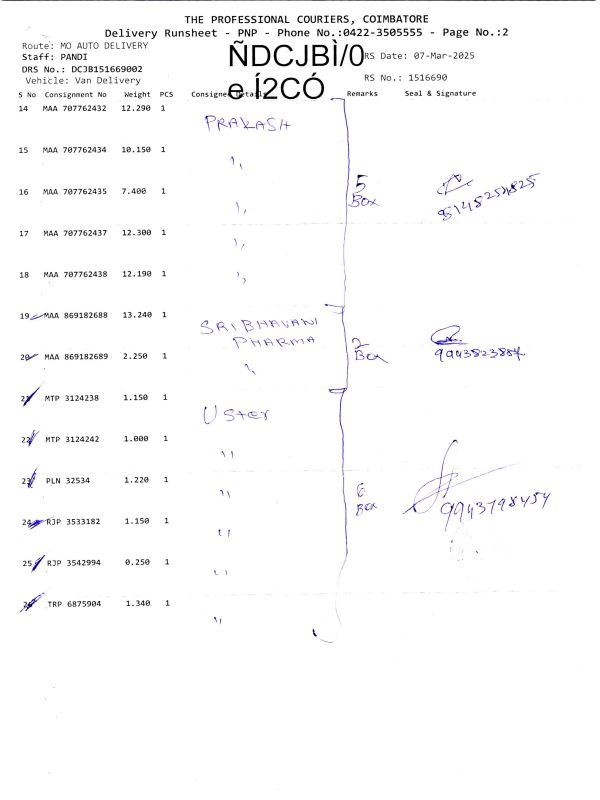 THE PROFESSIONAL COURIERS, COIMBATORE
Delivery Runsheet - PNP - Phone No.:0422-3505555 - Page No.:2
Route: MO AUTO DELIVERY
Staff: PANDI
DRS No.: DCJB151669002
Vehicle: Van Delivery
ÑDCJBÌ/0
e Í2CÓ
RS Date: 07-Mar-2025
RS No.: 1516690
S No Consignment No Weight PCS Consignee Details Remarks Seal & Signature
14 MAA 707762432 12.290 1 PRAKASH
15 MAA 707762434 10.150 1 ,,
16 MAA 707762435 7.400 1 ,, 5 Box
17 MAA 707762437 12.300 1 ,,
18 MAA 707762438 12.190 1 ,,
19 MAA 869182688 13.240 1 SRI BHAVANI PHARMA
20 MAA 869182689 2.250 1 ,, 2 Box
21 MTP 3124238 1.150 1 Uster
22 MTP 3124242 1.000 1 ,,
23 PLN 32534 1.220 1 ,, 6 Box 9943798454
24 RJP 3533182 1.150 1 ,,
25 RJP 3542994 0.250 1 ,,
26 TRP 6875904 1.340 1 ,,